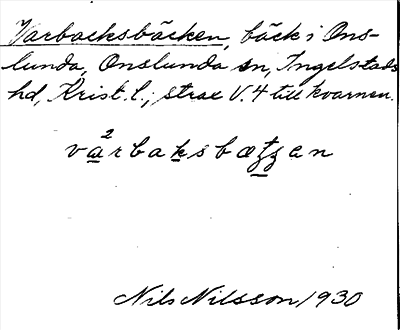 Varbacksbäcken, bäck i Ons-
lunda, Onslunda sn, Ingelstads
hd, Krist. l.; strax V. 4 till kvarnen.
va²rbaksbæʈʂen
Nils Nilsson 1930